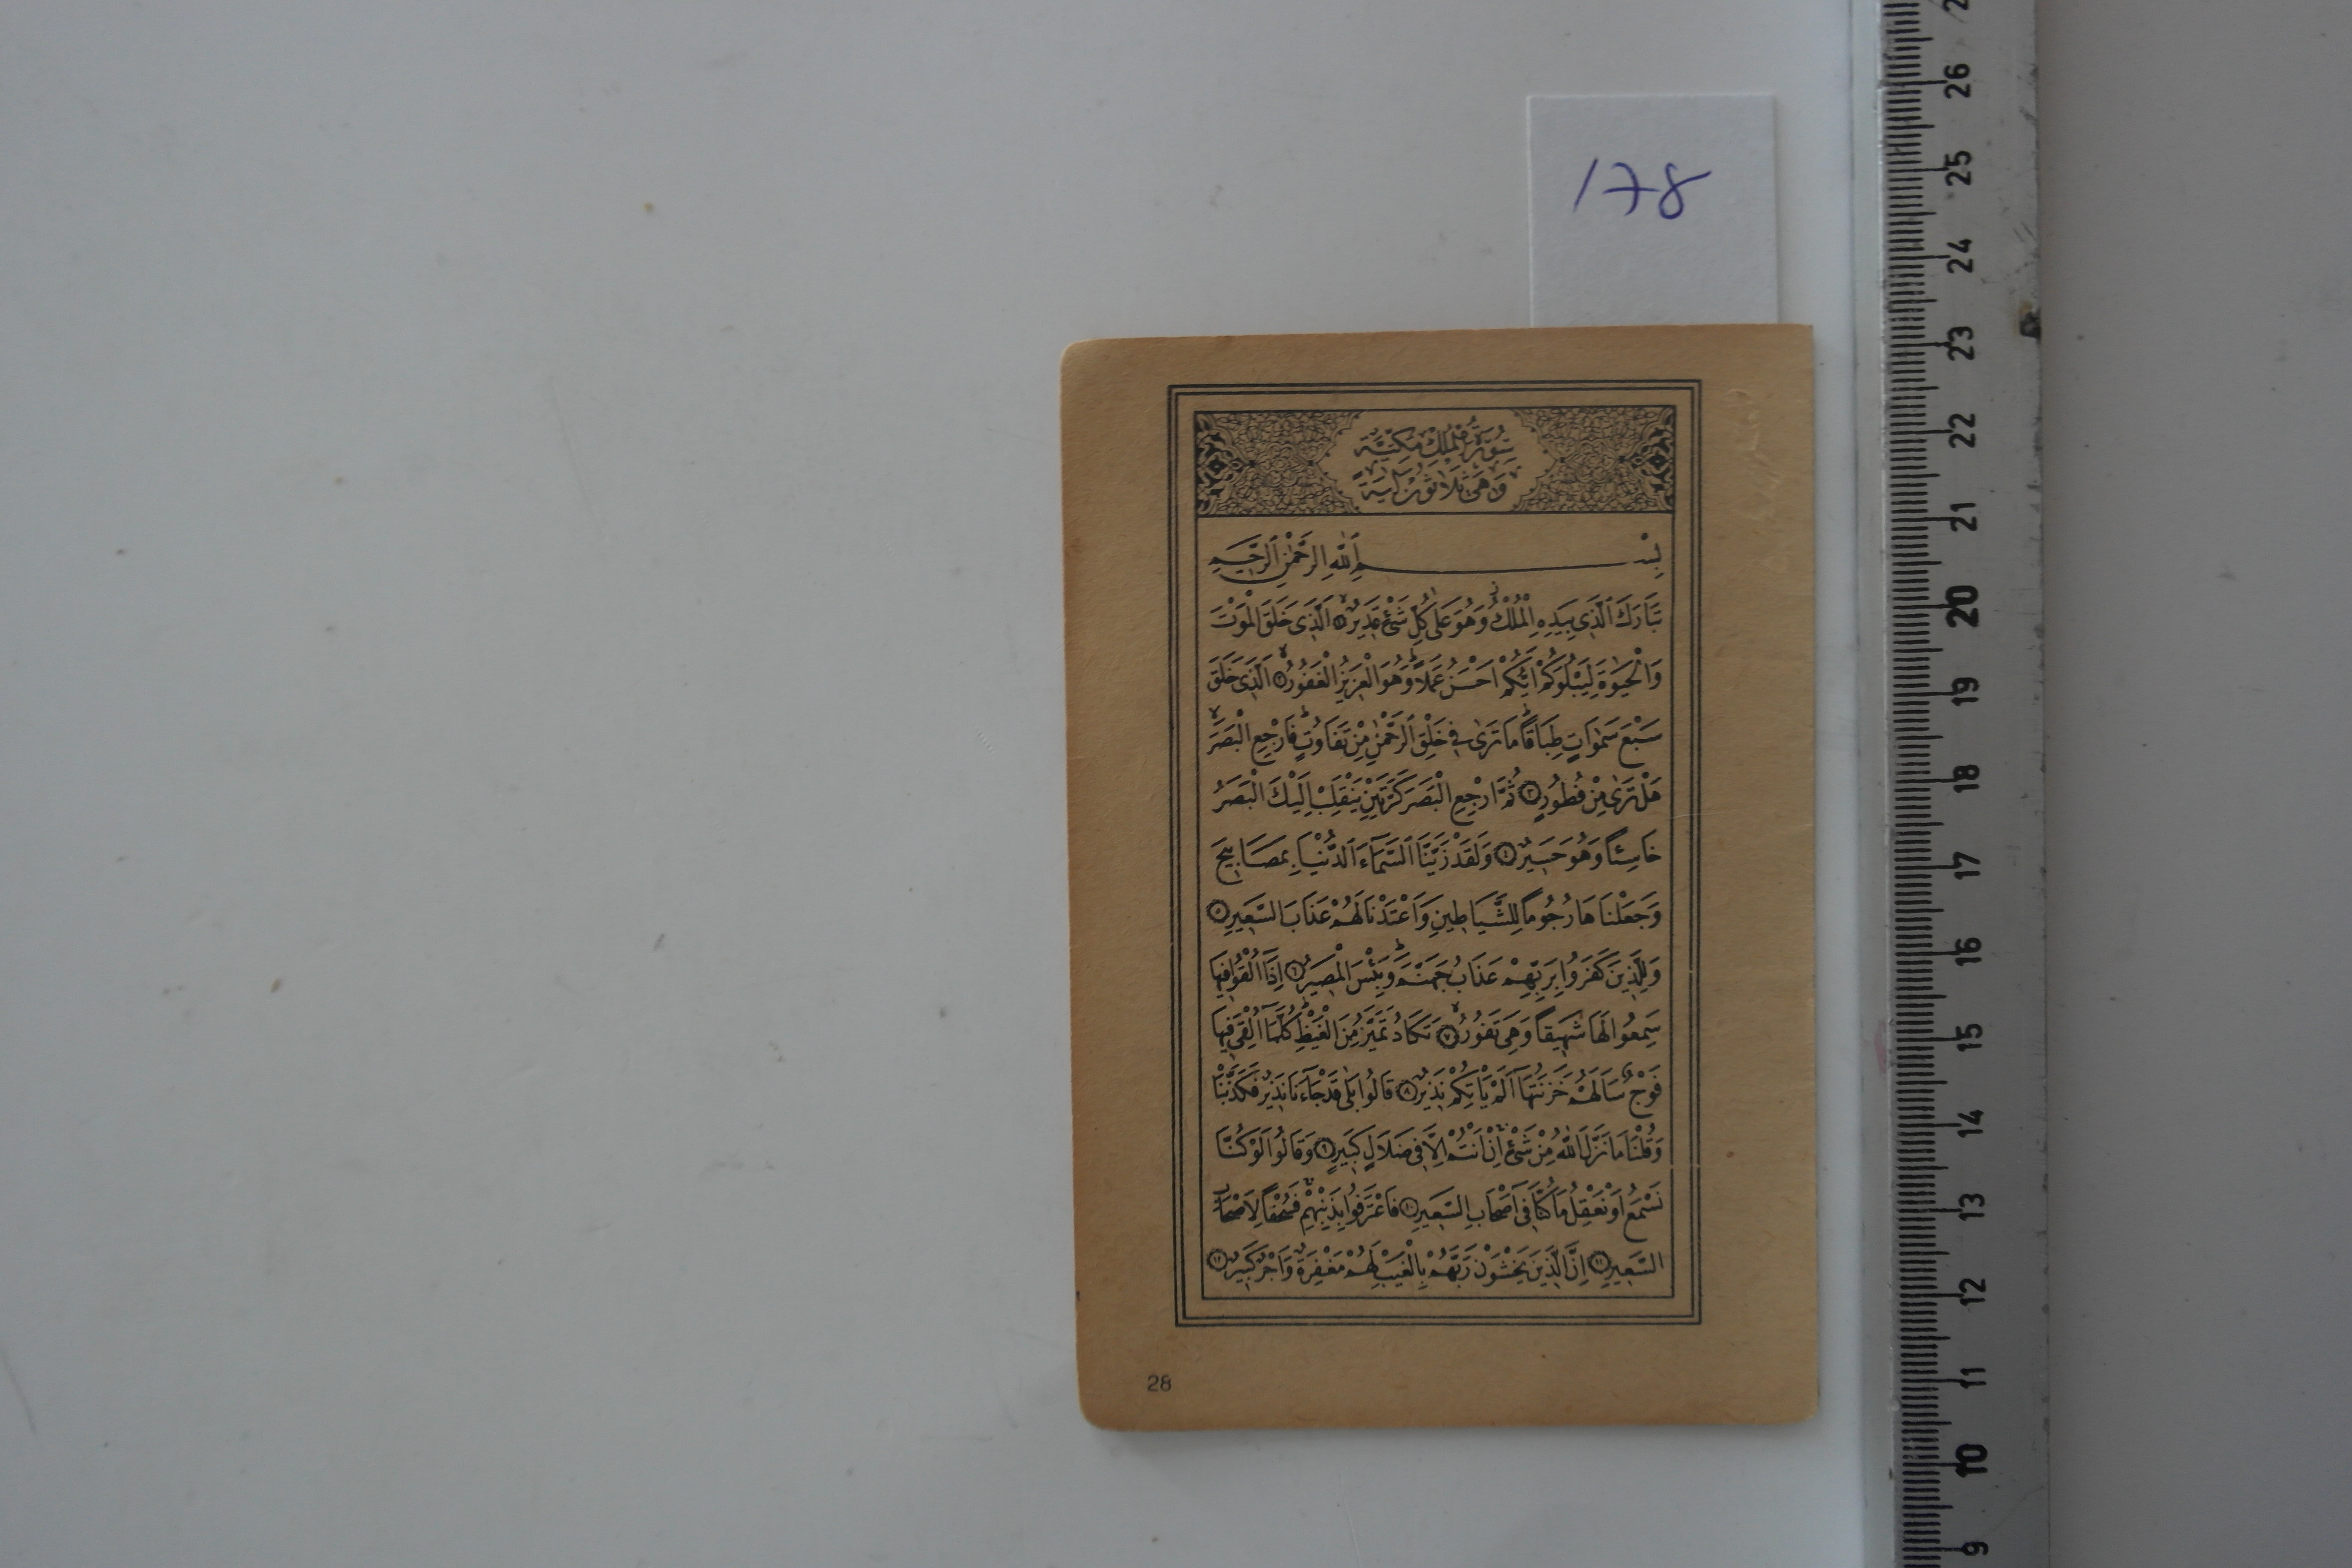 178
سُورَةُ الْمُلْكِ مَكِّيَّةٌ
وَهِيَ ثَلَاثُونَ اٰيَةً
بِسْمِ اللّٰهِ الرَّحْمٰنِ الرَّحِيمِ
تَبَارَكَ الَّذِى بِيَدِهِ الْمُلْكُ وَهُوَ عَلٰى كُلِّ شَىْءٍ قَدِيرٌ ١ اَلَّذِى خَلَقَ الْمَوْتَ
وَالْحَيٰوةَ لِيَبْلُوَكُمْ اَيُّكُمْ اَحْسَنُ عَمَلًا وَهُوَ الْعَزِيزُ الْغَفُورُ ٢ اَلَّذِى خَلَقَ
سَبْعَ سَمٰوَاتٍ طِبَاقًا مَا تَرٰى فِى خَلْقِ الرَّحْمٰنِ مِنْ تَفَاوُتٍ فَارْجِعِ الْبَصَرَ
هَلْ تَرٰى مِنْ فُطُورٍ ٣ ثُمَّ ارْجِعِ الْبَصَرَ كَرَّتَيْنِ يَنْقَلِبْ اِلَيْكَ الْبَصَرُ
خَاسِئًا وَهُوَ حَسِيرٌ ٤ وَلَقَدْ زَيَّنَّا السَّمَاءَ الدُّنْيَا بِمَصَابِيحَ
وَجَعَلْنَاهَا رُجُومًا لِلشَّيَاطِينِ وَاَعْتَدْنَا لَهُمْ عَذَابَ السَّعِيرِ ٥
وَلِلَّذِينَ كَفَرُوا بِرَبِّهِمْ عَذَابُ جَهَنَّمَ وَبِئْسَ الْمَصِيرُ ٦ اِذَا اُلْقُوا فِيهَا
سَمِعُوا لَهَا شَهِيقًا وَهِىَ تَفُورُ ٧ تَكَادُ تَمَيَّزُ مِنَ الْغَيْظِ كُلَّمَا اُلْقِىَ فِيهَا
فَوْجٌ سَاَلَهُمْ خَزَنَتُهَا اَلَمْ يَاْتِكُمْ نَذِيرٌ ٨ قَالُوا بَلٰى قَدْ جَاءَنَا نَذِيرٌ فَكَذَّبْنَا
وَقُلْنَا مَا نَزَّلَ اللّٰهُ مِنْ شَىْءٍ اِنْ اَنْتُمْ اِلَّا فِى ضَلَالٍ كَبِيرٍ ٩ وَقَالُوا لَوْ كُنَّا
نَسْمَعُ اَوْ نَعْقِلُ مَا كُنَّا فِى اَصْحَابِ السَّعِيرِ ١٠ فَاعْتَرَفُوا بِذَنْبِهِمْ فَسُحْقًا لِاَصْحَابِ
السَّعِيرِ ١١ اِنَّ الَّذِينَ يَخْشَوْنَ رَبَّهُمْ بِالْغَيْبِ لَهُمْ مَغْفِرَةٌ وَاَجْرٌ كَبِيرٌ ١٢
28
26
25
24
23
22
21
20
19
18
17
16
15
14
13
12
11
10
9